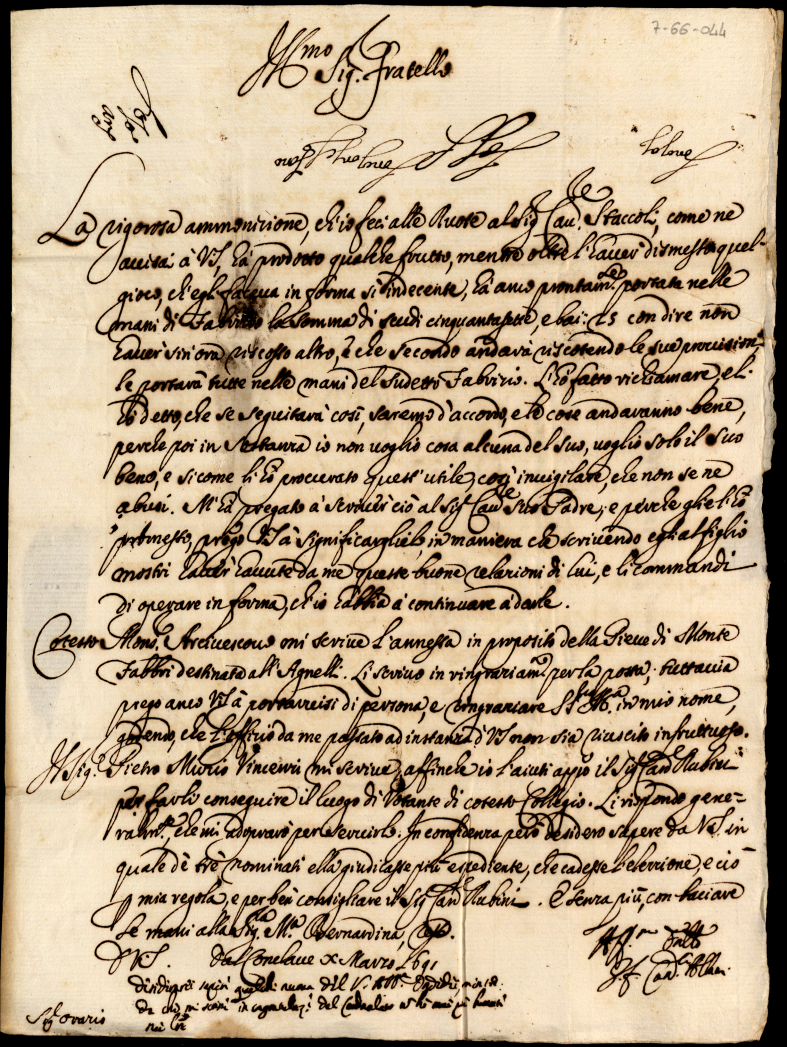 7-66-044
Ill.mo
Sig. Fratello
La rigorosa ammonizione, ch'io feci alle Ruote al Sig. Cau.re Staccoli, come ne
auisai à VS, hà prodotto qualche frutto, mentre oltre l'hauer dismesso quel
gioco, ch'egli faceua in forma sì indecente, hà anco prontam.te portate nelle
mani di Fabrizio la somma di scudi cinquantasette, e bai: 25 con dire non
hauer sin'ora riscosso altro, e che secondo andarà riscotendo le sue prouisioni
le portarà tutte nelle mani del sudetto Fabrizio. L'hò fatto richiamare, e li
hò detto, che se seguitarà così, saremo d'accordo, e le cose andaranno bene,
perche poi in sostanza io non uoglio cosa alcuna del suo, uoglio solo il suo
bene, e sicome li hò procurato quest'utile, così inuigilare, che non se ne
abusi. M'hà pregato à scriuer ciò al Sig. Cau.re suo Padre; e perche glie l'hò
promesso, prego VS à significarglielo in maniera che scriuendo egli al figlio
mostri hauer hauute da me queste buone relazioni di lui, e li commandi
di operare in forma, ch'io habbia à continuare à darle.
Cotesto Mons. Arciuescouo mi scriue l'annessa in proposito della Pieue di Monte
Fabbri destinata all'Agnelli. Li scriuo in ringraziam.to per la posta; tuttauia
prego anco VS à portaruisi di persona, e ringraziare in mio nome,
godendo, che l'offizio da me passato ad instanza di VS non sia riuscito infruttuoso.
Il Sig. Pietro Mario Vincenzi mi scriue, affinche io l'aiuti appo il Sig. Card. Rubini
per farli conseguire il luogo di Votante di cotesto Collegio. Li rispondo gene=
ralm.te, che mi adoprarò per seruirlo. In confidenza però desidero sapere da VS in
quale de trè nominati ella giudicasse più espediente, che cadesse l'elezzione, e ciò
p mia regola, e per ben consigliare il Sig. Card. Rubini. E senza più, con baciare
le mani alla Sig.ra M.a Bernardina,
D VS. Dal Conclaue X Marzo 1691
Aff.mo
G. F. Card. Albani
Sig. Orazio